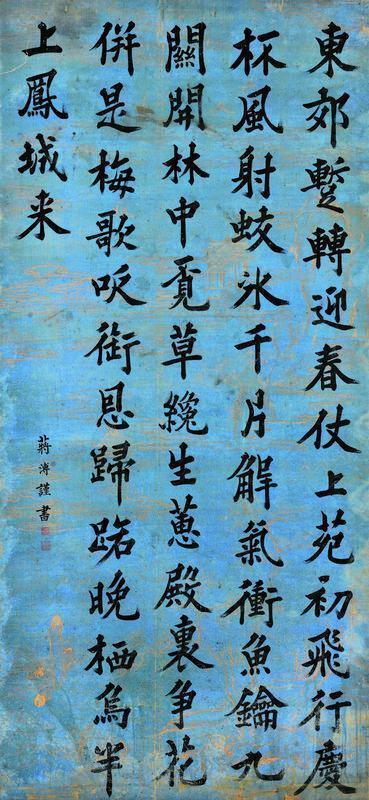 東郊蹔轉迎春仗上苑初飛行慶
杯風射蛟氷千片解氣衝魚鑰九
關開林中覔草纔生蕙殿裏争花
併是梅歌吹銜恩歸路晚栖烏半
上鳳城来
蔣溥謹書